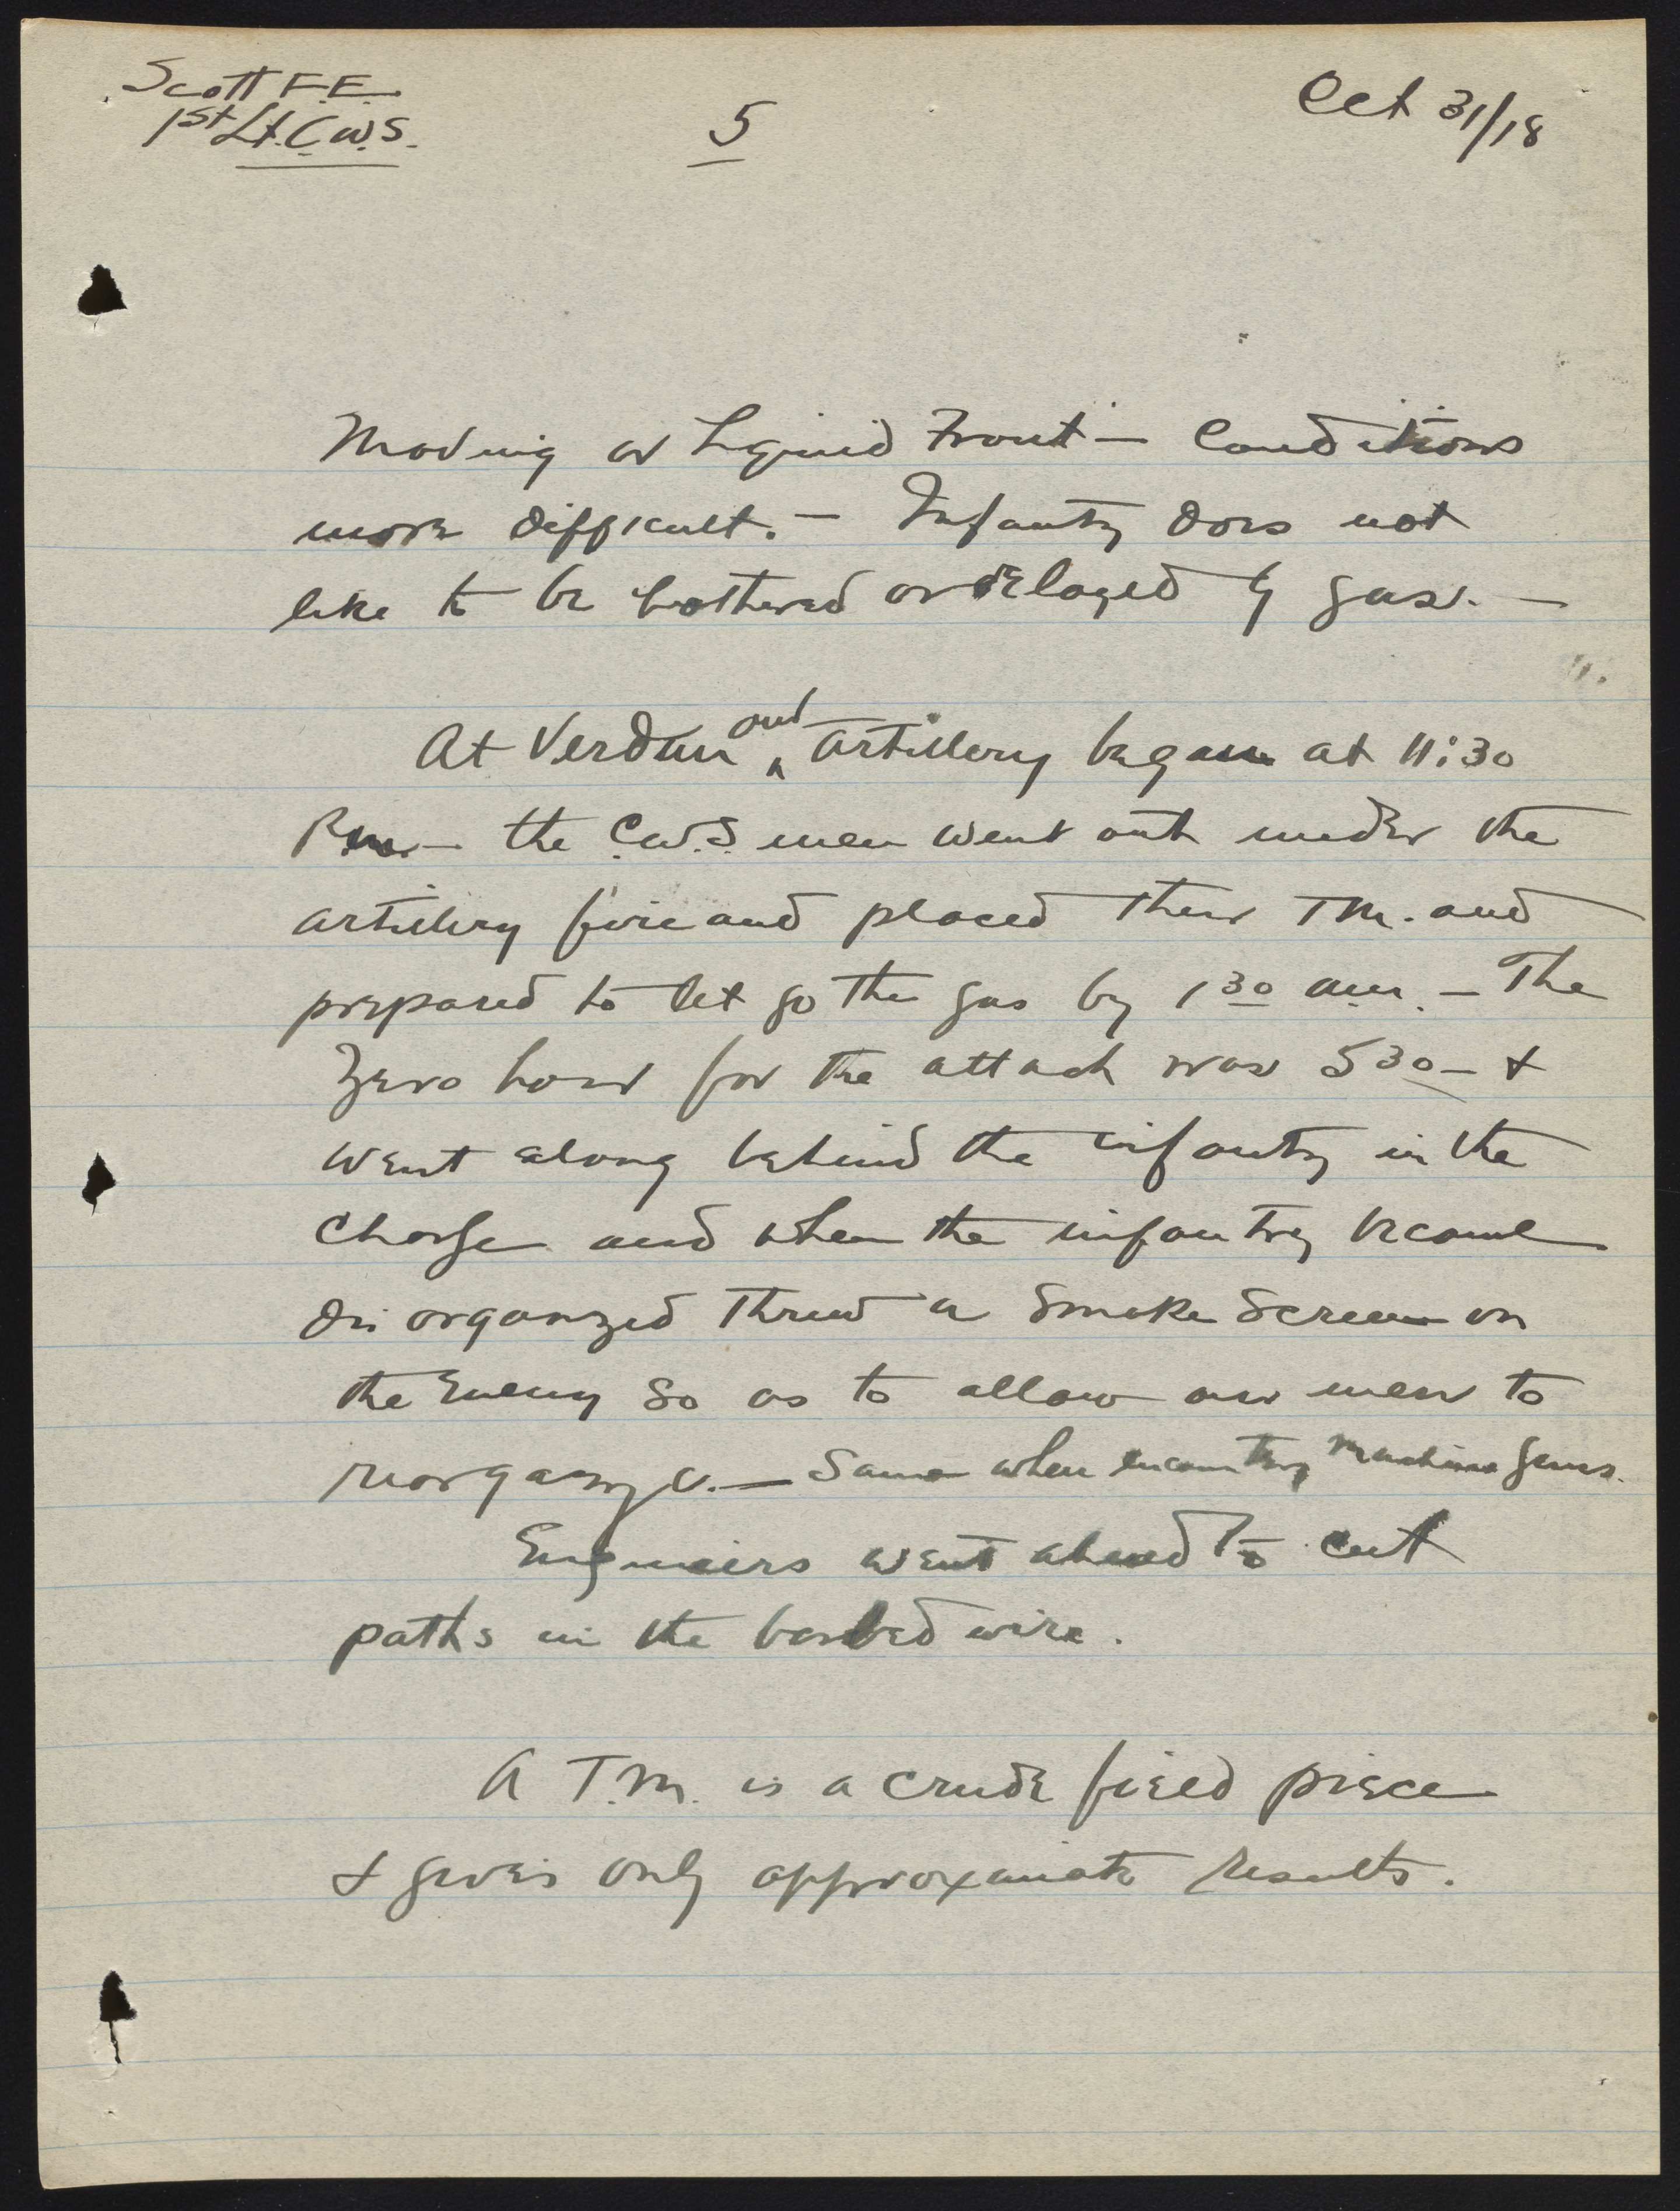 Scott F.E.
1st Lt. C.W.S.
5
Oct 31/18
Moving or Liquid Front — Conditions
more difficult. — Infantry does not
like to be bothered or delayed by gas. —
At Verdun our artillery began at 11:30
P.m. — the C.W.S. men went out under the
artillery fire and placed their T.M. and
prepared to let go the gas by 1 30 a.m. — The
Zero hour for the attack was 5 30 — &
went along behind the infantry in the
charge and when the infantry became
disorganized threw a smoke screen on
the enemy so as to allow our men to
reorganize. — Same when encountering machine guns.
Engineers went ahead to cut
paths in the barbed wire.
A T.M. is a crude field piece
& gives only approximate results.